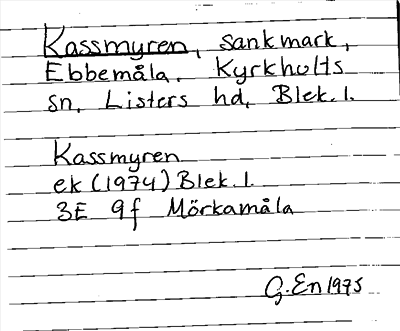 Kassmyren, sankmark,
Ebbemåla. Kyrkhults
sn, Listers hd, Blek. l.
Kassmyren
ek (1974) Blek. l.
3E 9f Mörkamåla
G. En 1975